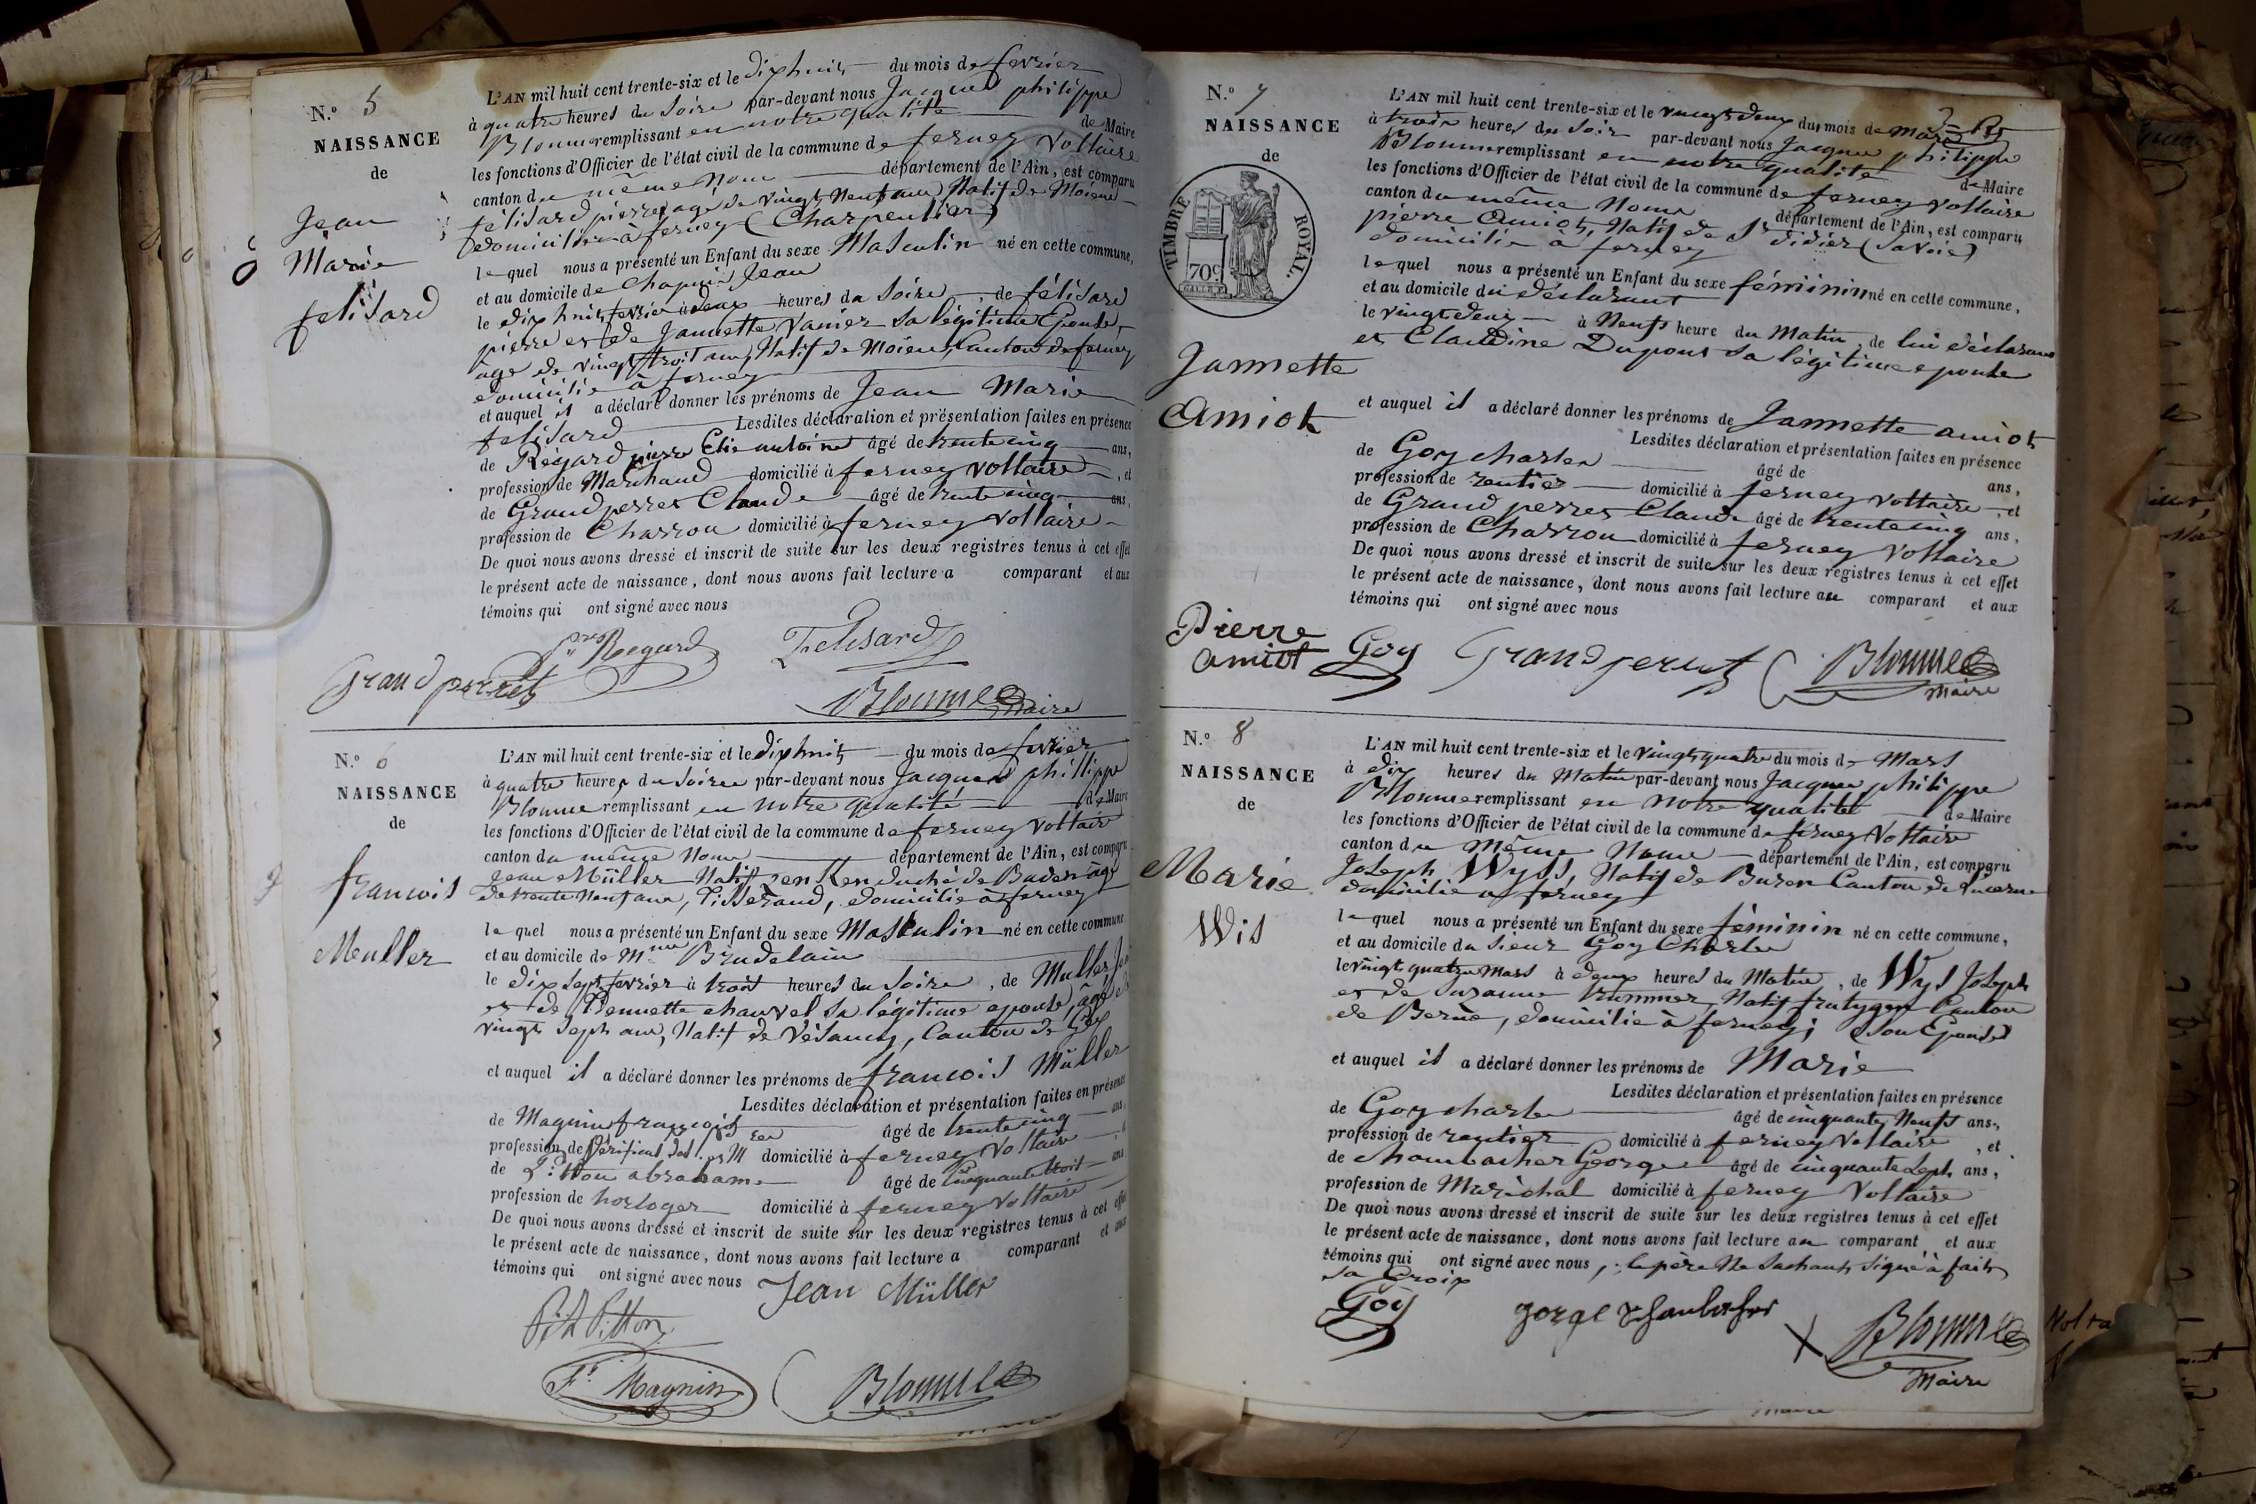 N.º 5
NAISSANCE
de
Jean
Marie
felisard
L'AN mil huit cent trente-six et le dixhuit du mois de fevrier
à quatre heures du Soire par-devant nous Jacques philippe
Blonne remplissant en notre qualité de Maire
les fonctions d'Officier de l'état civil de la commune de ferney Voltaire
canton du même Nom département de l'Ain, est comparu
félisard pierre agé de vingt Neuf ans Natif de Moiens
domicilié à ferney (Charpentier)
lequel nous a présenté un Enfant du sexe Masculin né en cette commune,
et au domicile de Chapuis Jean
le dix huit fevrier à deux heures du Soire, de félisard
pierre et de Jannette Vanier Sa légitime Epouse,
âge de vingt troit ans, Natif de Moiens, Canton de ferney
domicilié à ferney
et auquel il a déclaré donner les prénoms de Jean Marie
felisard Lesdites déclaration et présentation faites en présence
de Régard pierre Elie antoine âgé de trente cinq ans,
profession de Marchand domicilié à ferney Voltaire, et
de Grandperret Claude âgé de trente cinq ans,
profession de Charron domicilié à ferney Voltaire
De quoi nous avons dressé et inscrit de suite sur les deux registres tenus à cet effet
le présent acte de naissance, dont nous avons fait lecture a comparant et aux
témoins qui ont signé avec nous
Regard Felisard
Grandperret
Blonne Maire
N.º 6
NAISSANCE
de
francois
Meuller
L'AN mil huit cent trente-six et le dixhuit du mois de fevrier
à quatre heures du Soiree par-devant nous Jacques phillippe
Blonne remplissant en notre qualité de Maire
les fonctions d'Officier de l'état civil de la commune de ferney Voltair
canton du même Nom département de l'Ain, est comparu
Jean Müller Natif duché de Baden âgé
de trente Neuf ans, Tisserand, domicilié à ferney
lequel nous a présenté un Enfant du sexe Masculin né en cette commune
et au domicile de Mme
le dix Sept fevrier à troit heures du Soire, de Muller
et de Pernette chauvet Sa légitime epouse, âgé de
vingt Sept ans, Natif de Vésancy, Canton de Gex
et auquel il a déclaré donner les prénoms de francois Müller
Lesdites déclaration et présentation faites en présence
de Magnin françois âgé de trente cinq ans,
profession de domicilié à ferney Voltaire, et
de Pitton abraham âgé de Cinquante troit ans
profession de horloger domicilié à ferney Voltaire
De quoi nous avons dressé et inscrit de suite sur les deux registres tenus à cet effet
le présent acte de naissance, dont nous avons fait lecture a comparant et aux
témoins qui ont signé avec nous Jean Müller
Pitton
Fs Magnin Blonne
N.º 7
NAISSANCE
de
TIMBRE ROYAL.
70c
Jannette
Amiot
L'AN mil huit cent trente-six et le vingt deux du mois de mars
à trois heures du Soir par-devant nous Jacques philippe
Blonne remplissant en notre qualité de Maire
les fonctions d'Officier de l'état civil de la commune de ferney Voltaire
canton du même Nom département de l'Ain, est comparu
pierre Amiot, Natif de St didier (Savoie)
domicilié à ferney
lequel nous a présenté un Enfant du sexe féminin né en cette commune,
et au domicile du déclarant
le vingt deux à Neuf heure du Matin, de lui déclarant
et Claudine Dupont Sa légitime epouse
et auquel il a déclaré donner les prénoms de Jannette amiot
Lesdites déclaration et présentation faites en présence
de Goy charles âgé de ans,
profession de rentier domicilié à ferney Voltaire, et
de Grand perret Claude âgé de trente cinq ans,
profession de Charron domicilié à ferney Voltaire
De quoi nous avons dressé et inscrit de suite sur les deux registres tenus à cet effet
le présent acte de naissance, dont nous avons fait lecture au comparant et aux
témoins qui ont signé avec nous
Pierre
Amiot Goy Grandperret Blonne
Maire
N.º 8
NAISSANCE
de
Marie
Wis
L'AN mil huit cent trente-six et le vingt quatre du mois de Mars
à dix heures du Matin par-devant nous Jacques philippe
Blonne remplissant en notre qualité de Maire
les fonctions d'Officier de l'état civil de la commune de ferney Voltaire
canton du même Nom département de l'Ain, est comparu
Joseph Wyss, Natif de Buren Canton de Lucerne
domicilié a ferney
lequel nous a présenté un Enfant du sexe féminin né en cette commune,
et au domicile du Sieur Goy Charles
le vingt quatre Mars à deux heures du Matin, de Wys Joseph
et de Suzanne Natif frutygen Canton
de Berne, domicilié à ferney; Son Epouse
et auquel il a déclaré donner les prénoms de Marie
Lesdites déclaration et présentation faites en présence
de Goy charles âgé de cinquante Neuf ans,
profession de rentier domicilié à ferney Voltaire, et
de chambacher George âgé de cinquante Sept ans,
profession de Maréchal domicilié à ferney Voltaire
De quoi nous avons dressé et inscrit de suite sur les deux registres tenus à cet effet
le présent acte de naissance, dont nous avons fait lecture au comparant et aux
témoins qui ont signé avec nous, le père Ne Sachant Signé à fait
Sa Croix
Goy Blonne
Maire